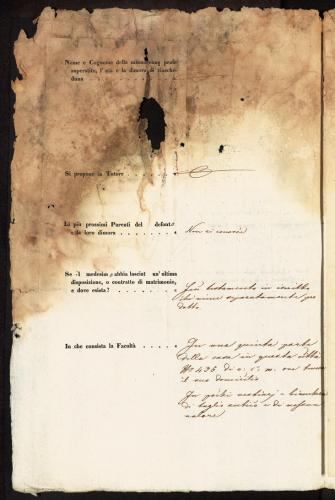 Nome e Cognome della
superstite, l'età e la dimora di ciasche-
duna
Si propone in Tutore . . . . . . .
Li più prossimi Parenti del defont°
e la loro dimora . . . . . . . .
Non si conosce
Se il medesim° abbia lasciat un'ultima
disposizione, o contratto di matrimonio,
e dove esista? . . . . . . . . .
testamento in iscritto
che viene separatamente pro
dotto.
In che consista la Facoltà . . . . .
In una quinta parte
della casa in questa città
N° 436 di
il suo domicilio
In pochi mobili, e biancheria
di taglio antico e di nessun
valore